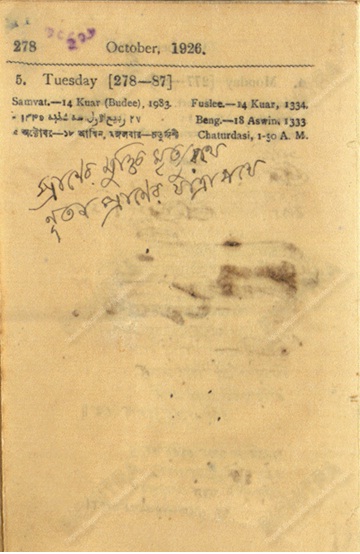 278 October, 1926.
5. Tuesday [278—87]
Samvat.—14 Kuar (Budee), 1983. Fuslee.—14 Kuar, 1334.
Beng.—18 Aswin, 1333
৫ অক্টোবর—১৮ আশ্বিন, মঙ্গলবার—চতুর্দ্দশী Chaturdasi, 1-50 A. M.
প্রাণের মুক্তি মৃত্যুরথে
নূতন প্রাণের যাত্রাপথে